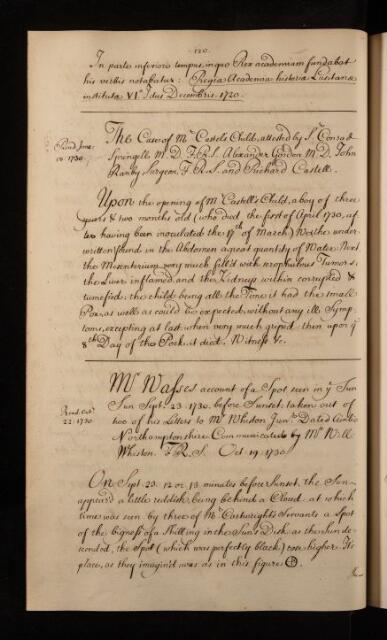 120.
In parte inferiori tempus, in quo Rex academiam fundabat
his verbis notabatur: Regia Academia historiæ Lusitanæ
instituta VI.º Idus Decembris. 1720.
Read June
10 1730
The Case of Mr. Castels Child, attested by Sr. Conrad
Springell M.D. F.R.S. Alexander Gordon M.D. John
Ranby Surgeon, F.R.S. and Richard Castell.
Upon the opening of Mr Castell's Child, a boy of three
years & two months old (who died the first of April 1730, af
ter having been inoculated the 17th of March) We the under
written found in the Abdomen a great quantity of Water. Next
the Mesenterium very much fill'd with scrophulous Tumors,
the Liver inflamed, and the Kidneys within corrupted &
tumefied. the child being all the Time it had the small
Pox, as well as could be expected, without any ill Symp
toms, excepting at last when very much griped then upon ye
8th Day of the Pock it died. Witness &c.
Read Oct.
22. 1730
Mr Wasses account of a Spot seen in ye Sun
Sun Sept. 23. 1730. before Sunset: taken out of
two of his Letters to Mr Whiston Junr. Dated
Northamptonshire Communicated by Mr Will.
Whiston. F.R.S. Oct 19. 1730.
On Sept. 23. 12 or 13 minutes before Sunset, the Sun
appear'd a little reddish, being behind a Cloud. at which
time was seen by three of Mr Cartwright's Servants a Spot
of the bigness of a Shilling in the Sun's Disk. as the Sun de
scended, the Spot (which was perfectly black) rose higher. Its
place, as they imagin'd was as in this figure